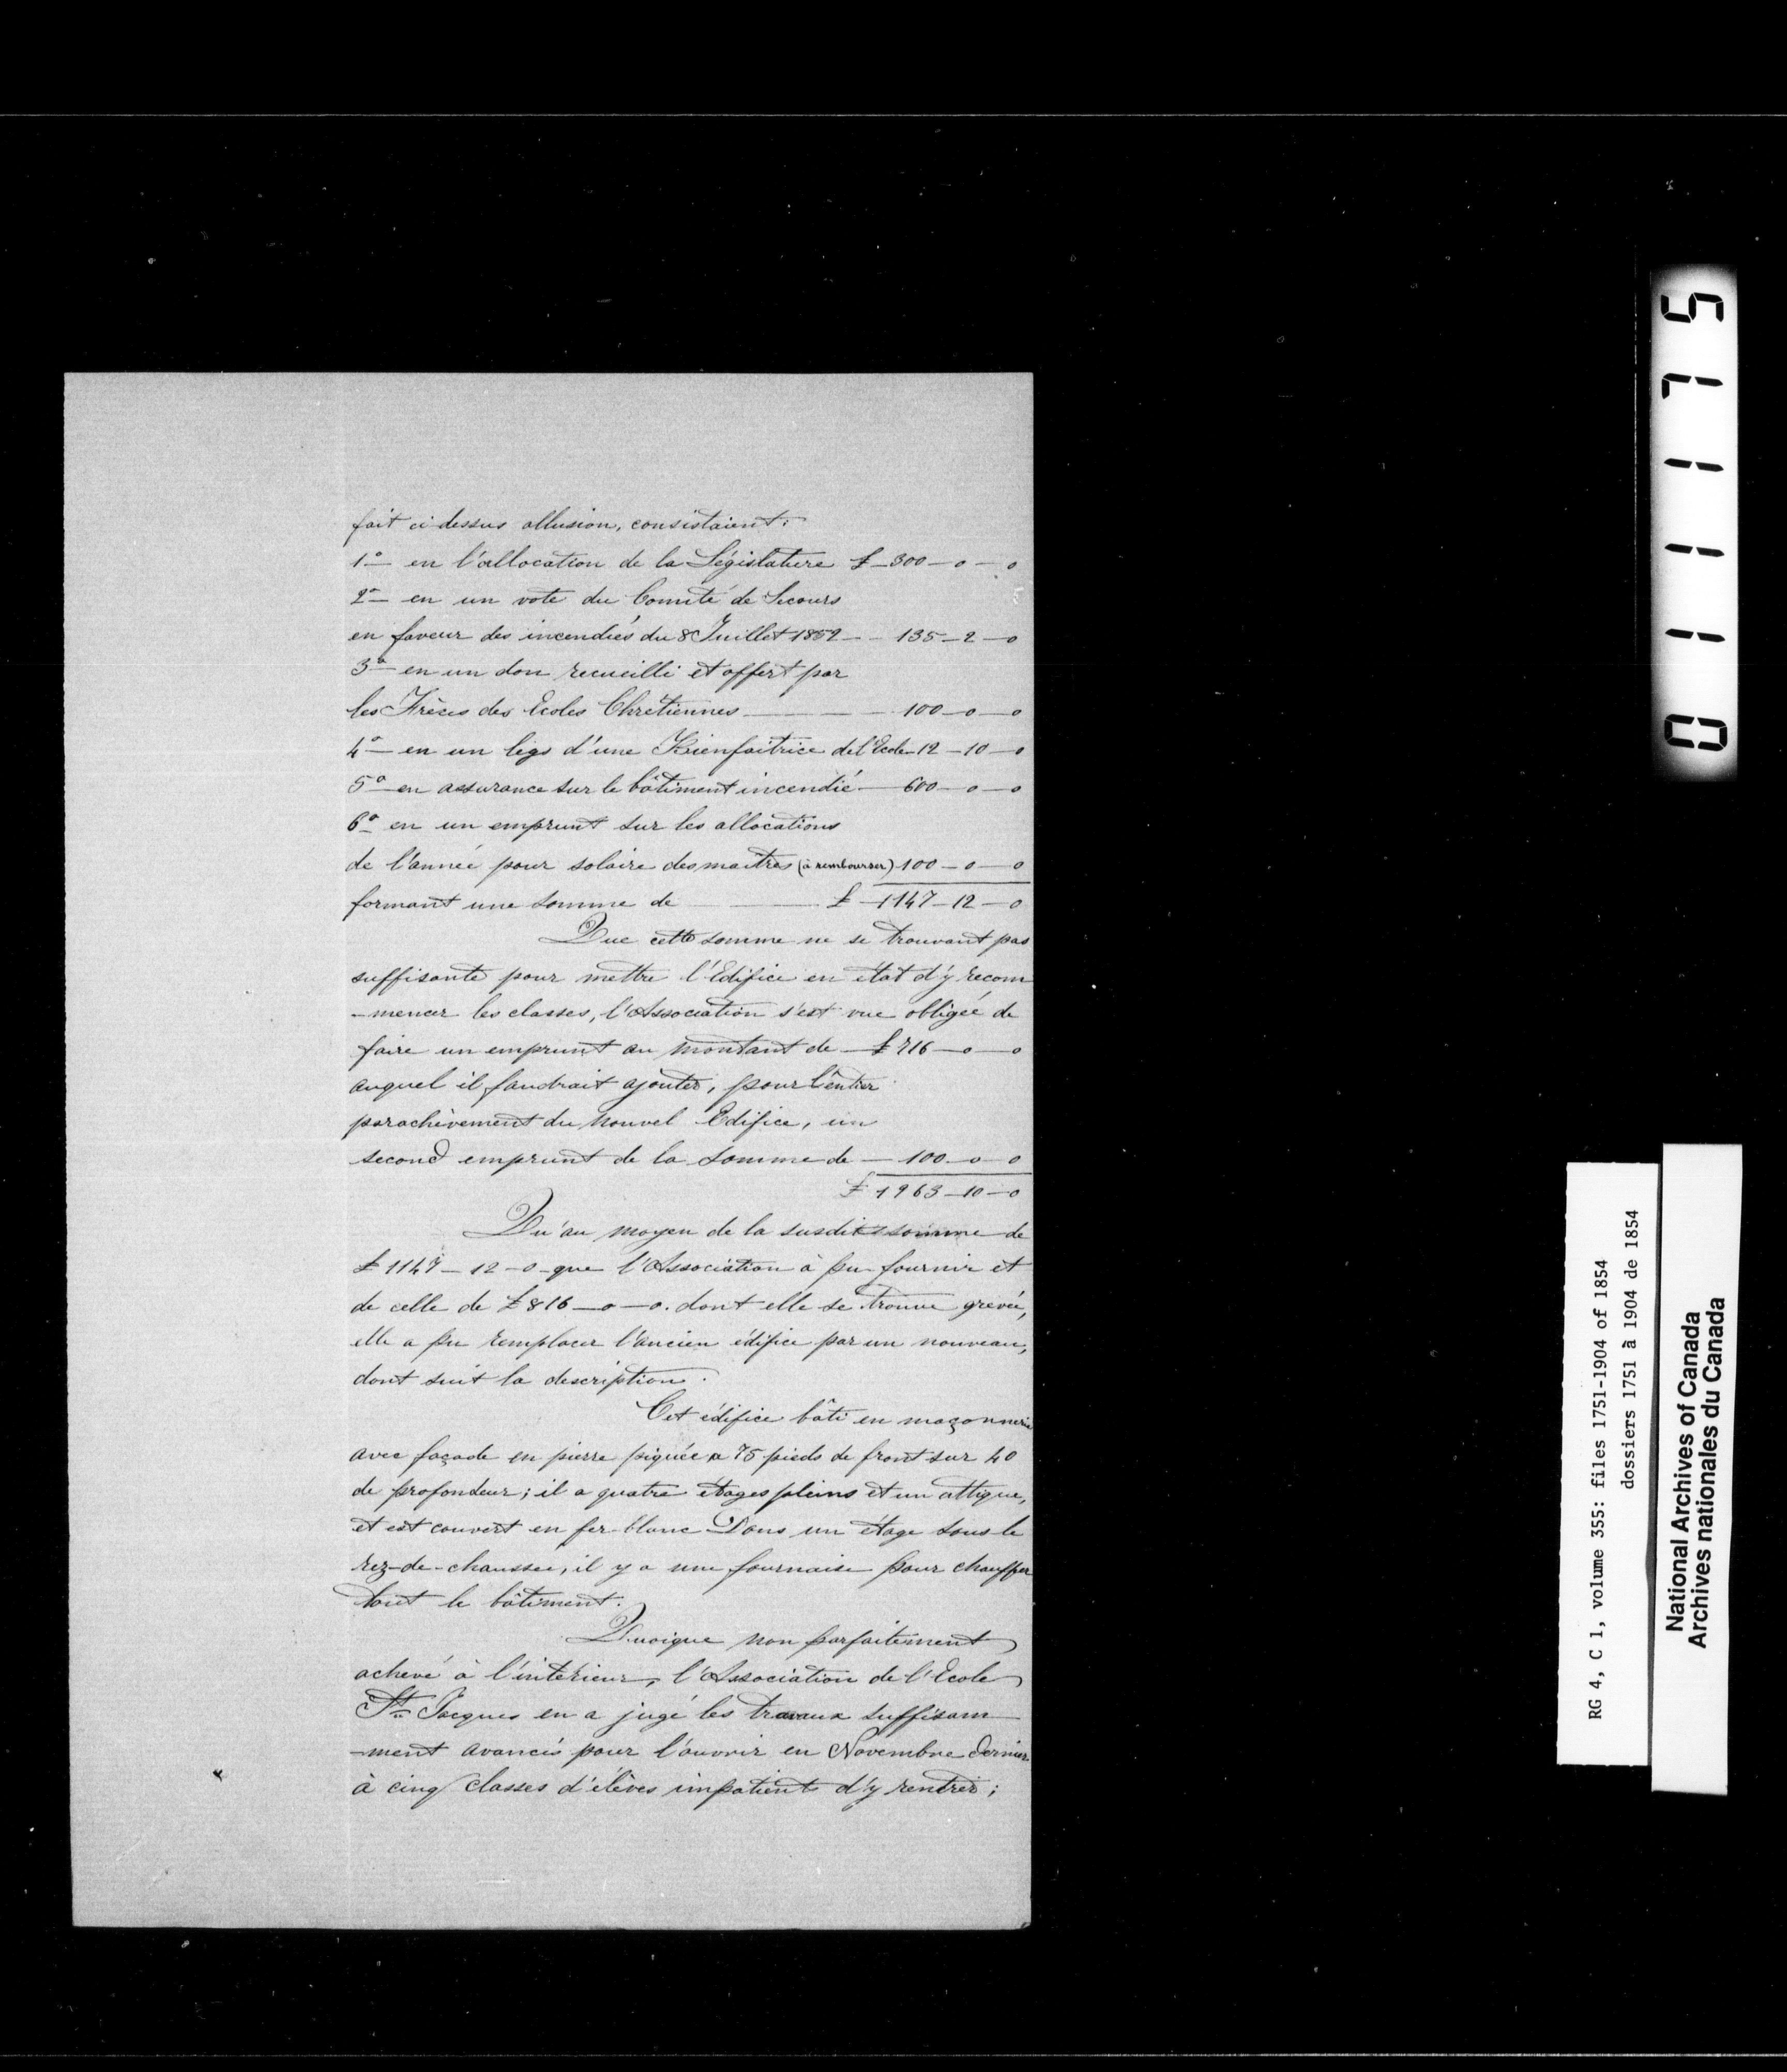 fait ci dessus allusion, consistaient:
1º — en l'allocation de la Législature £ — 300 — 0 — 0
2º — en un vote du Comité de Secours
en faveur des incendiés du 8 Juillet 1852 — - 135 — 2 — 0
3º — en un don recueilli et offert par
les Frères des Ecoles Chrétiennes — — - 100 — 0 — 0
4º — en un legs d'une Bienfaitrice de l'Ecole - 12 — 10 — 0
5º — en assurance sur le bâtiment incendié — 600 — 0 — 0
6º — en un emprunt sur les allocations
de l'année pour salaire des maîtres (à rembourser) 100 — 0 — 0
formant une somme de — £ — 1147 — 12 — 0
Que cette somme ne se trouvant pas
suffisante pour mettre l'Edifice en état d'y recom
-mencer les classes, l'Association s'est vue obligée de
faire un emprunt au montant de — £ 716 — 0 — 0
auquel il faudrait ajouter, pour l'entier
parachèvement du nouvel Edifice, un
second emprunt de la somme de — 100 — 0 — 0
£ 1963 — 10 — 0
Qu'au moyen de la susdite somme de
£ 1147 — 12 — 0 — que l'Association à pu fournir et
de celle de £ 816 — 0 — 0. dont elle se trouve grevée,
elle a pu remplacer l'ancien édifice par un nouveau,
dont suit la description.
Cet édifice bâti en maçonnerie
avec façade en pierre piquée a 75 pieds de front sur 40
de profondeur; il a quatre étages pleins et un attique,
et est couvert en fer-blanc Dans un étage sous le
rez-de-chaussée, il y a une fournaise pour chauffer
tout le bâtiment.
Quoique non parfaitement
achevé à l'intérieur, l'Association de l'Ecole
St. Jacques en a jugé les travaux suffisam
-ment avancés pour l'ouvrir en Novembre dernier
à cinq classes d'élèves impatients d'y rentrer;
011175
RG 4, C 1, volume 355: files 1751-1904 of 1854
dossiers 1751 à 1904 de 1854
National Archives of Canada
Archives nationales du Canada